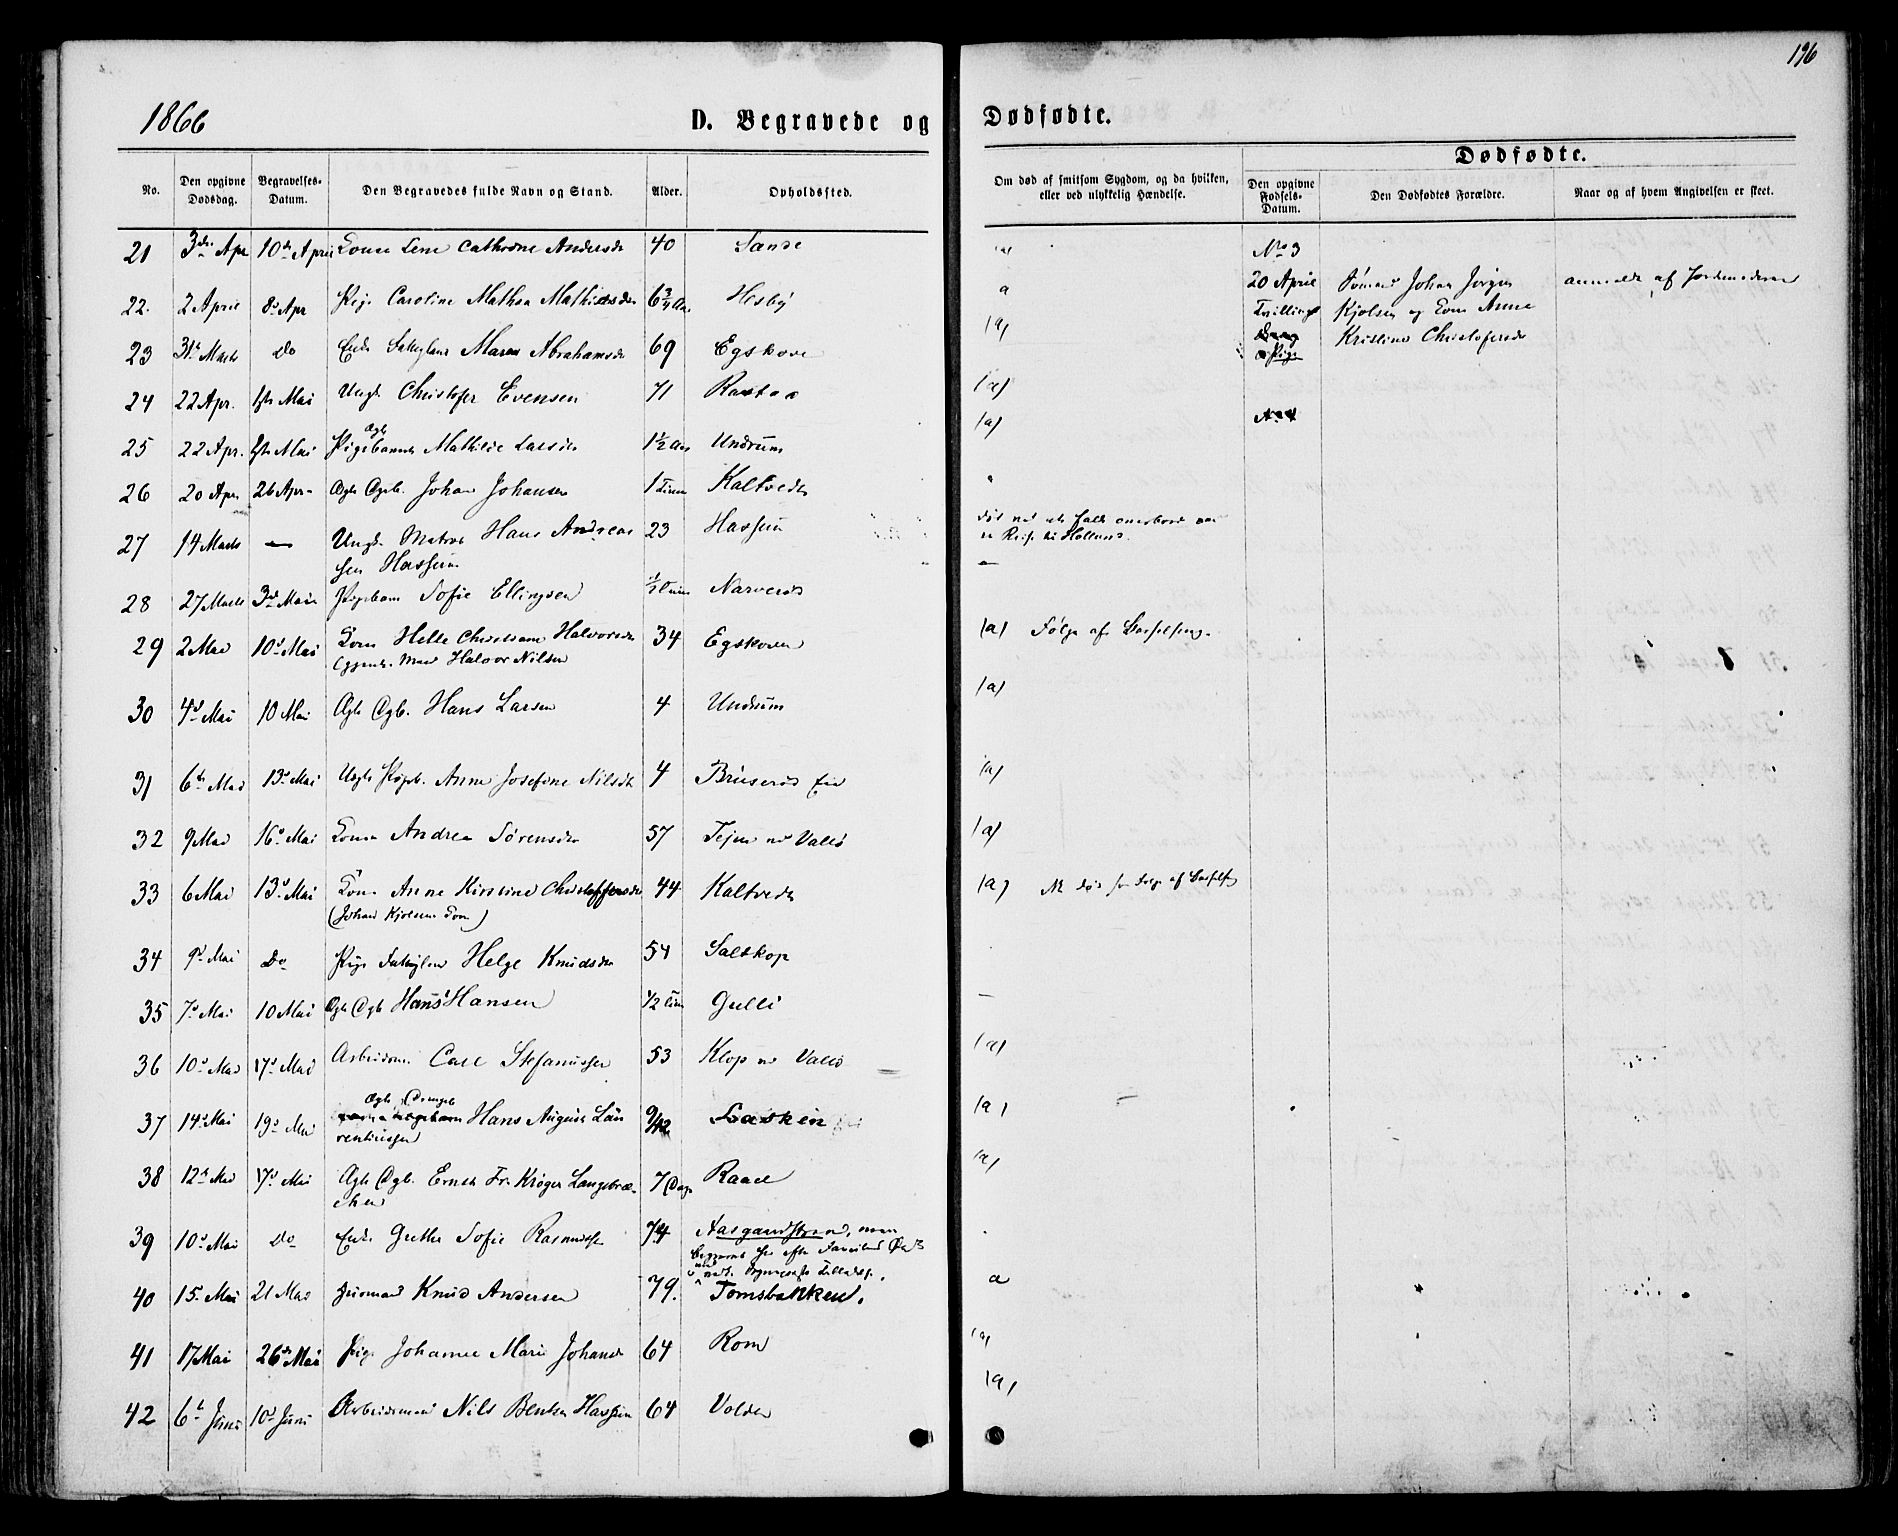 196
1866
D. Begravede og Dødfødte.
Dødfødte.
No.
Den opgivne Dødsdag.
Begravelses-Datum.
Den Begravedes fulde Navn og Stand.
Alder.
Opholdssted.
Om død af smitsom Sygdom, og da hvilken, eller ved ulykkelig Hændelse.
Den opgivne Fødsels-Datum.
Den Dødfødtes Forældre.
Naar og af hvem Angivelsen er skeet.
21 3die Apr 10de April Kone Lene Cathrine Andersdr 40 Sande
No 3
22. 2 April 8d Apr Pige Caroline Mathea Mathiasdr 6 3/4 Aar Hesby a
20 April Tømmd Johan Jørgen anmeldt af Jordemoderen
Tvilling Kjølsen og Kone Anne
Pige Kristine Christofersdr
23 31te Marts Do Enke Maren Abrahamsdr 69 Egskoven (a)
24 22 Apr. 1ste Mai Ungk. Christofer Evensen 71 Rastad (a)
No 4
25 22 Apr. 1ste Mai Ægte Pigebarn Mathilde Larsdr 1 1/2 Aar Undrum (a)
26 20 Apr 26 Apr Ægte Dgb. Johan Johansen 1 Time Kaltvedt
27 14 Marts — Ungk. Matros Hans Andreas 23 Hassum
sen Hassum
død ved at falde overbord paa
en Reise til Holland.
28 27 Marts 3die Mai Pigebarn Sofie Ellingsen 1/2 Time Narverød —
29 2 Mai 10d Mai Kone Helle Christiane Halvorsdr 34 Egskoven (a) Følge af Barselseng.
Halvor Nilsen
30 4d Mai 10 Mai Ægte Dgb. Hans Larsen 4 Undrum (a)
31 6te Mai 13d Mai Pigeb. Anne Josefine Nilsdr 4 Bruserød (a)
32 9 Mai 16d Mai Kone Andrea Sørensdr 57 Tejne vd Vallø (a)
33 6 Mai 13d Mai Kone Anne Kirstine Christoffersdr 44 Kaltvedt (a)
(Johan Kjølsens Kone)
34 9d Mai Do Pige Helge Knudsdr 54 Saltkop
35 7d Mai 10 Mai Ægte Dgb Hans Hansen 1/2 Time Gulli —
36 10d Mai 17d Mai Arbeidsm. Carl Stefanussen 53 Klop vd Vallø (a)
37 14d Mai 19d Mai Ægte Drengeb. Hans August Lau 9/12 Basken (a)
rentiussen
38 12te Mai 17d Mai Ægte Dgb. Ernst Fr. Krøger Langebræ 7 Dage Raael (a)
ken
39 10d Mai Do Enke Grethe Sofie Rasmussen 74 Aasgaardstrand, men
begravet her efter
40 15. Mai 21 Mai Huusmand Knud Andersen 79. Tomsbakken. a
41 17 Mai 26d Mai Pige Johanne Marie Johansdr 64 Rom (a)
42 6te Juni 10d Juni Arbeidsmand Nils Bentsen Hassum 64 Volden (a)